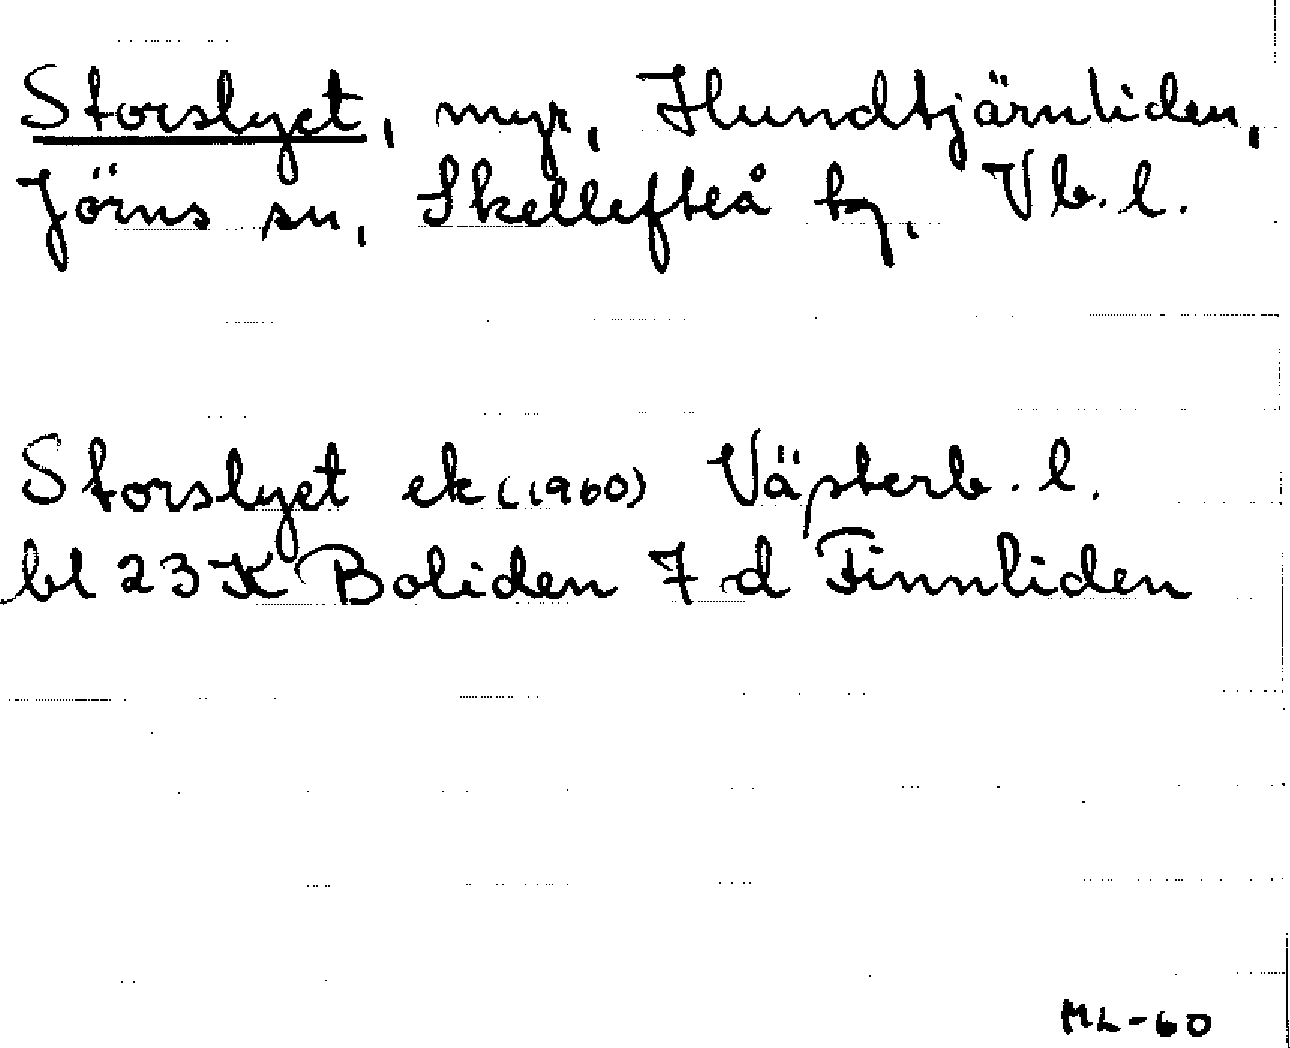 Storslyet, myr, Hundtjärnliden,
Jörns sn, Skellefteå tg, Vb.l.
Storslyet ek (1960) Västerb. l.
bl 23 K Boliden 7 d Finnliden
ML-60